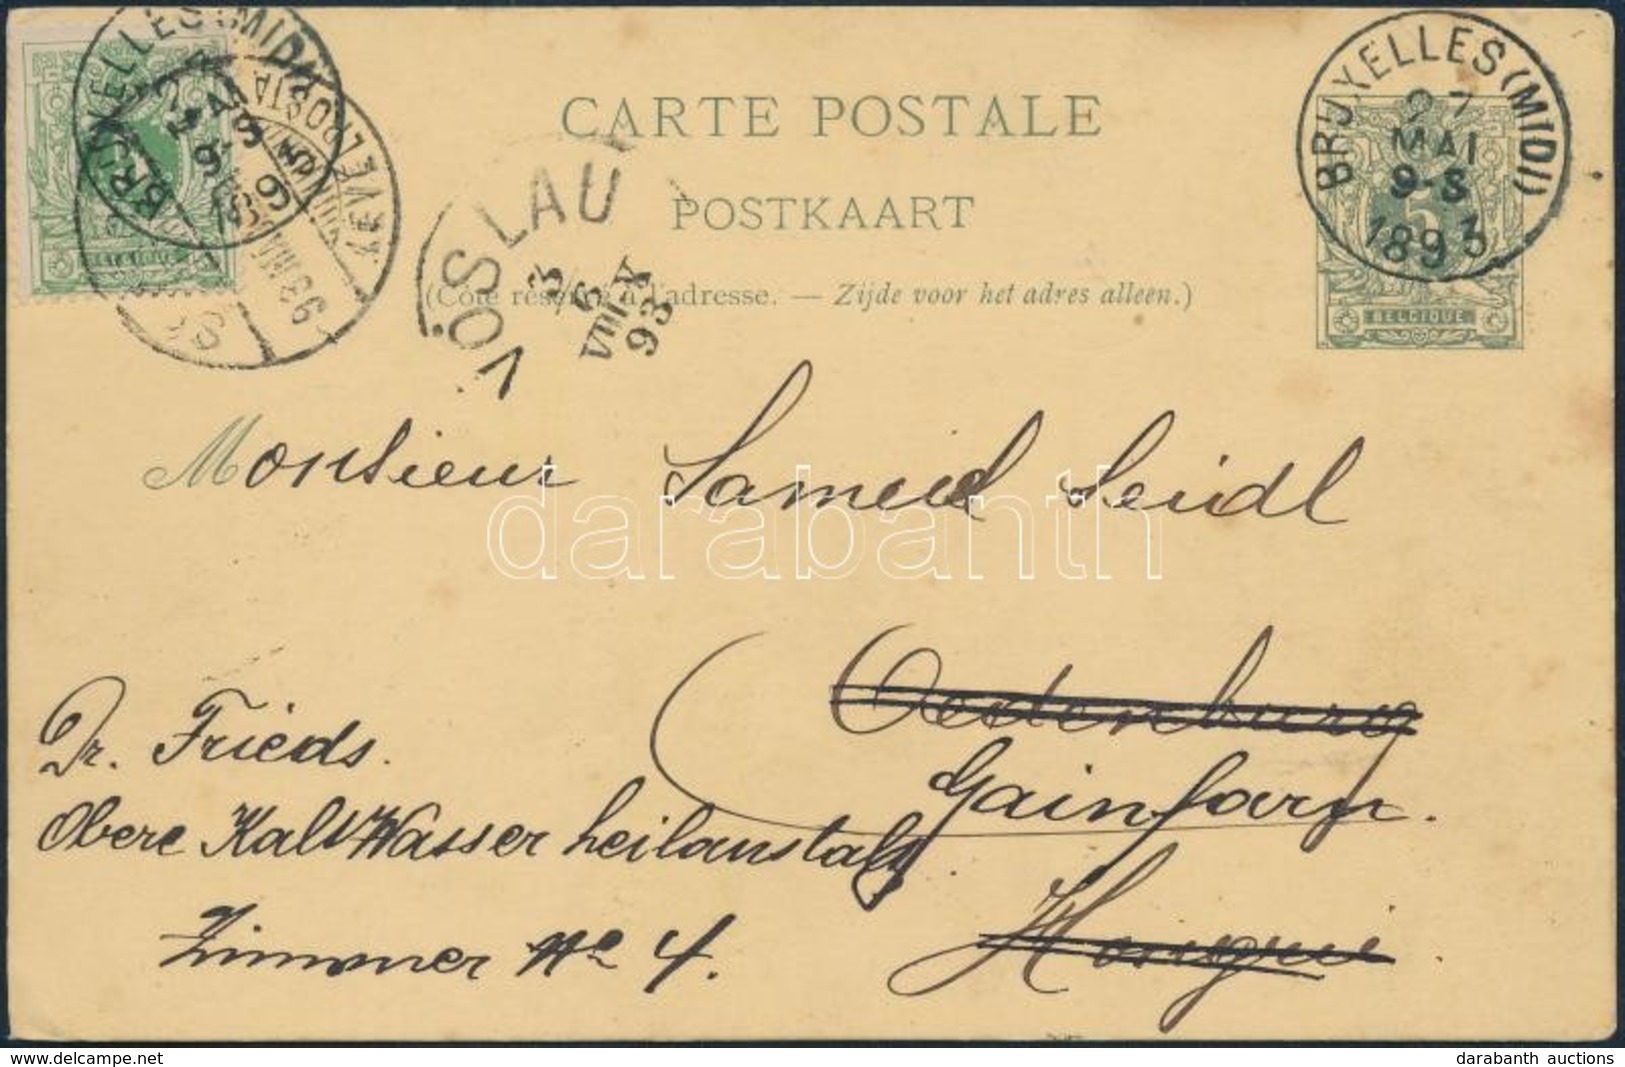 CARTE POSTALE
POSTKAART
(Côté réservé à l'adresse. — Zijde voor het adres alleen.)
BRUXELLES (MIDI)
27
MAI
9-S
1893
5
BELGIQUE
BRUXELLES (MIDI)
BELGIQUE
VÖSLAU
3
6
VIII
93
Monsieur Samuel Seidl
Oedenburg
Gainfarn.
Hongrie
Dr. Frieds.
Obere Kalt Wasser heilanstalt
Zimmer No 4.
darabanth
www.delcampe.net
darabanth auctions